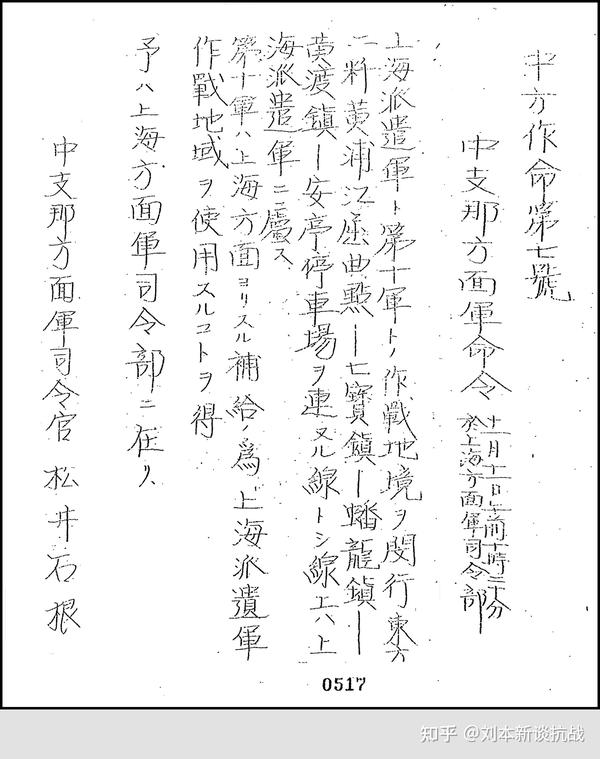 中方作命第七號
中支那方面軍命令
十一月十一日午前十時二十分
於上海方面軍司令部
上海派遣軍ト第十軍トノ作戰地境ヲ閔行東方
二粁黄浦江屈曲點ー七寶鎮ー蟠龍鎮ー
黄渡鎮ー安亭停車場ヲ連ヌル線トシ線上ハ上
海派遣軍ニ屬ス
第十軍ハ上海方面ヨリスル補給ノ爲上海派遣軍
作戰地域ヲ使用スルコトヲ得
予ハ上海方面軍司令部ニ在リ
中支那方面軍司令官 松井石根
0517
知乎 @刘本新谈抗战